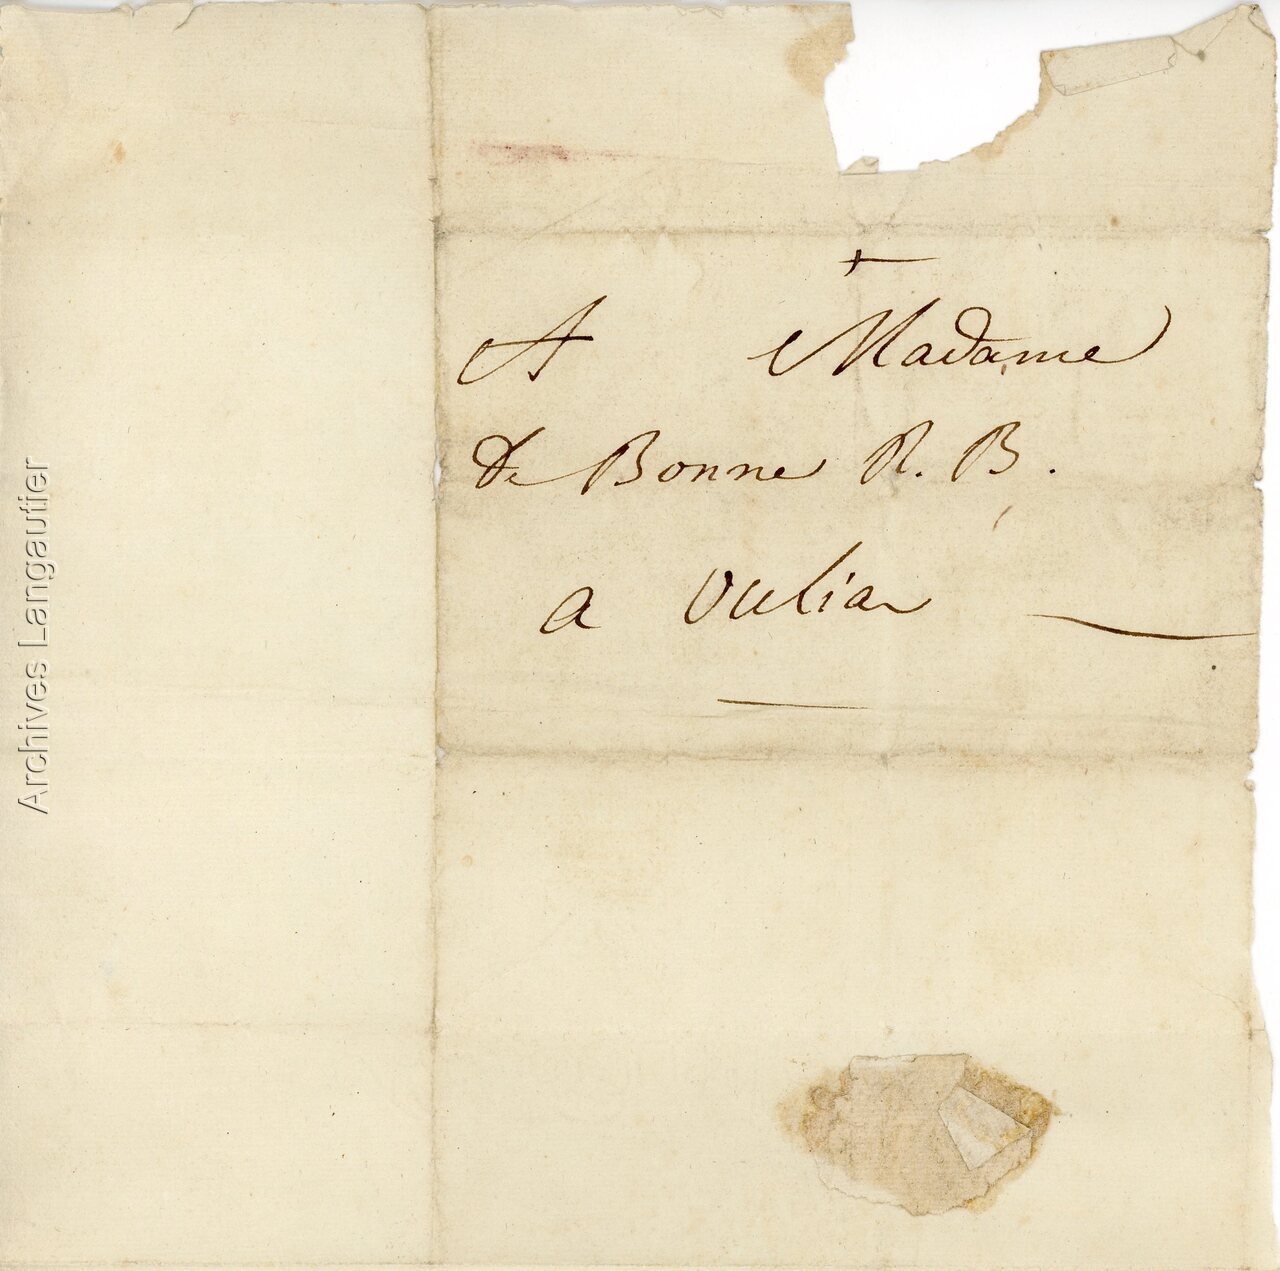 +
A Madame
de Bonne R. B.
a vielia
Archives Langautier